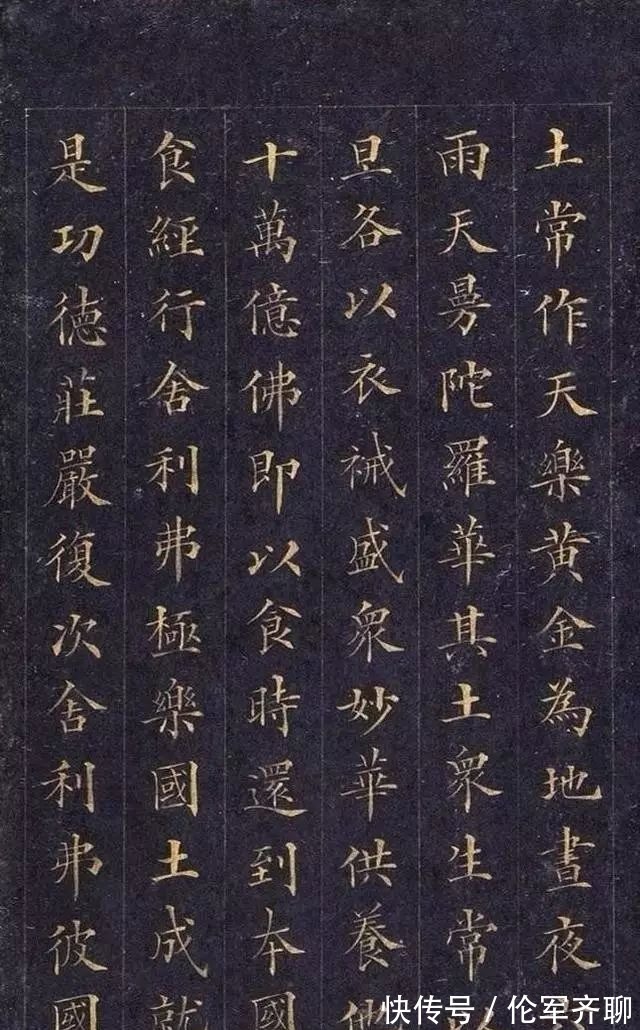 土常作天樂黄金為地晝夜
雨天曼陀羅華其土衆生常
旦各以衣裓盛衆妙華供養
十萬億佛即以食時還到本國
食經行舍利弗極樂國土成就
是功徳莊嚴復次舍利弗彼國
快传号／伦军齐聊